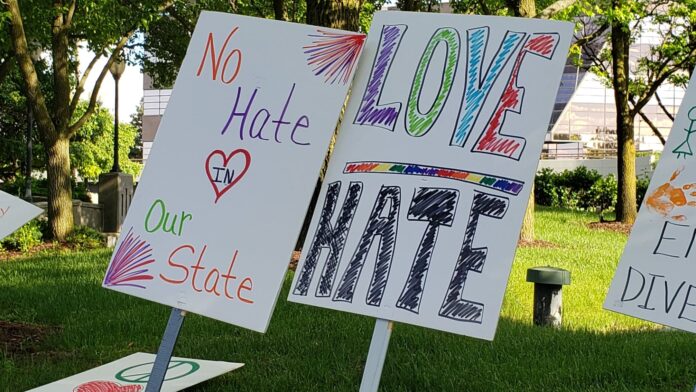 No
Hate
IN
Our
State
LOVE
HATE
DIVE